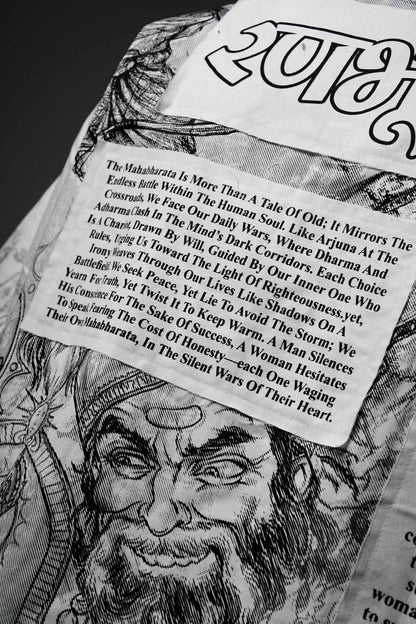 रणभू
The Mahabharata Is More Than A Tale Of Old; It Mirrors The
Endless Battle Within The Human Soul. Like Arjuna At The
Crossroads, We Face Our Daily Wars, Where Dharma And
Adharma Clash In The Mind's Dark Corridors. Each Choice
Is A Chariot, Drawn By Will, Guided By Our Inner One Who
Rules, Urging Us Toward The Light Of Righteousness.yet,
Irony Weaves Through Our Lives Like Shadows On A
Battlefield. We Seek Peace, Yet Lie To Avoid The Storm; We
Yearn For Truth, Yet Twist It To Keep Warm. A Man Silences
His Conscience For The Sake Of Success, A Woman Hesitates
To Speak, Fearing The Cost Of Honesty—each One Waging
Their Own Mahabharata, In The Silent Wars Of Their Heart.